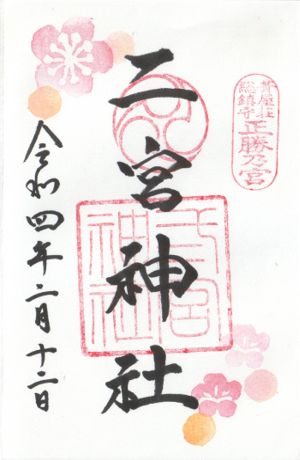 葺屋荘
総鎮守
正勝乃宮
二宮神社
二宮
神社
令和四年二月十二日